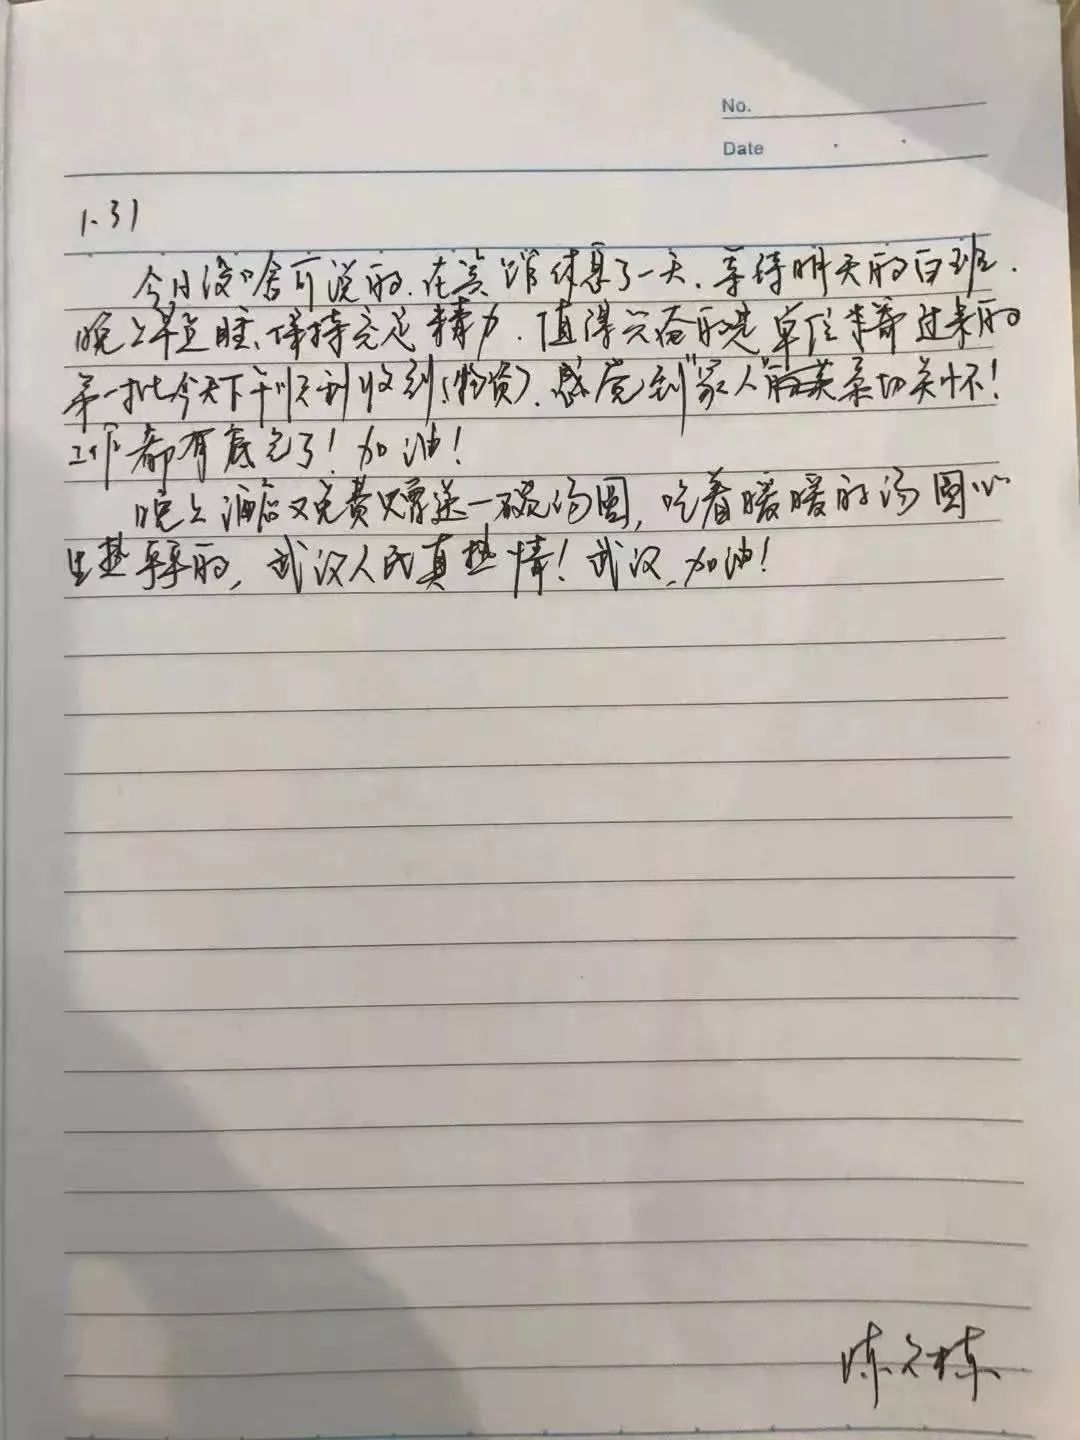 No.
Date
1.31
今日没啥可说的.在宾馆休息了一天.等待明天的白班.
晚上早点睡、保持充足精力.值得兴奋的是单位寄过来的
第一批今天下午顺利收到(物资).感觉到"家人"的亲切关怀!
工作都有底气了!加油!
晚上酒店又免费赠送一碗汤圆,吃着暖暖的汤圆心
里热乎乎的,武汉人民真热情!武汉,加油!